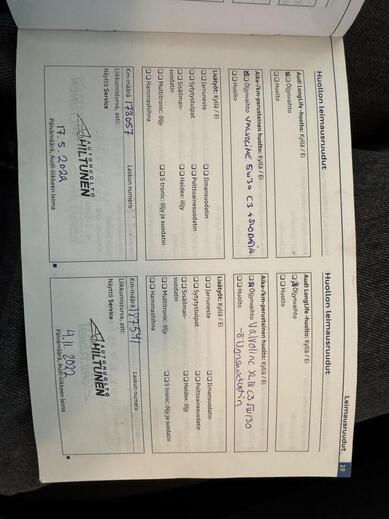 Leimausruudut 19
Huollon leimausruudut
Audi LongLife -huolto: Kyllä / Ei
Öljynvaihto
Huolto
Aika-/km-perusteinen huolto: Kyllä / Ei
Öljynvaihto VALVOLINE 5W30 C3 + SUODATIN
Huolto
Lisätyöt: Kyllä / Ei
Jarruneste
Ilmansuodatin
Sytytystulpat
Polttoainesuodatin
Sisäilman-
suodatin
Haldex: öljy
Multitronic: öljy
S tronic: öljy ja suodatin
Hammashihna
Km-määrä 178057
Laskun numero
Liikkumisturva, asti:
Näyttö Service
AUTOHUOLTO
HILTUNEN
17.5.2022
Päivämäärä, Audi-liikkeen leima
Huollon leimausruudut
Audi LongLife -huolto: Kyllä / Ei
Öljynvaihto
Huolto
Aika-/km-perusteinen huolto: Kyllä / Ei
Öljynvaihto Valvoline XLIII C3 5W/30
Huolto
Lisätyöt: Kyllä / Ei
Jarruneste
Ilmansuodatin
Sytytystulpat
Polttoainesuodatin
Sisäilman-
suodatin
Haldex: öljy
Multitronic: öljy
S tronic: öljy ja suodatin
Hammashihna
Km-määrä
Laskun numero
Liikkumisturva, asti:
Näyttö Service
AUTOHUOLTO
HILTUNEN
4.11.2022
Päivämäärä, Audi-liikkeen leima